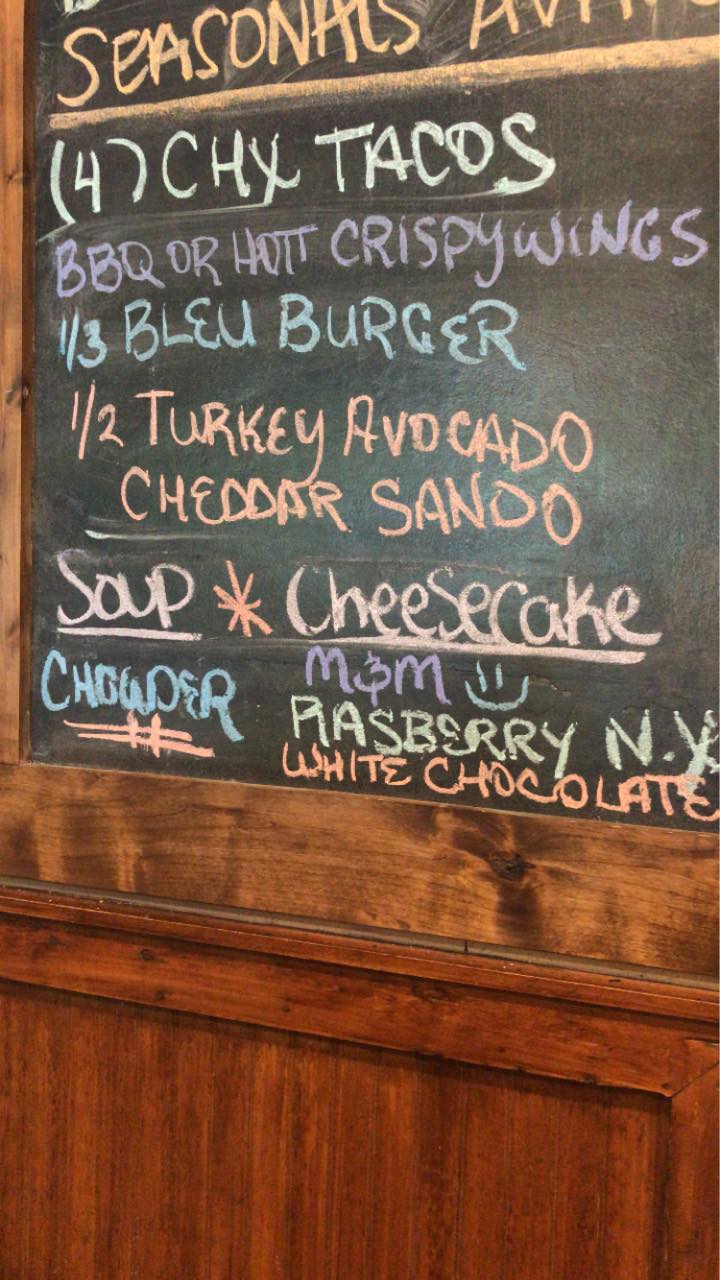 SEASONALS
(4) CHX TACOS
BBQ OR HOTT CRISPY WINGS
1/3 BLEU BURGER
1/2 TURKEY AVOCADO
CHEDDAR SANDO
Soup * Cheesecake
CHOWDER M&M
RASBERRY N.Y.
WHITE CHOCOLATE